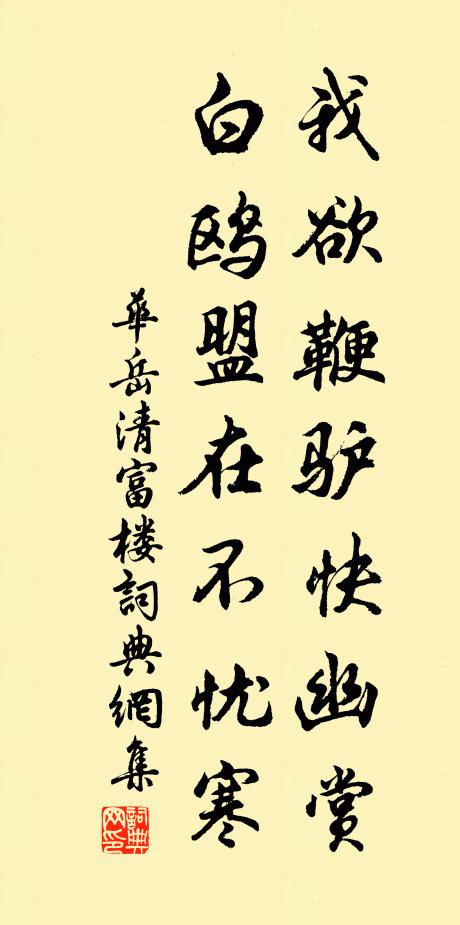 我欲鞭驴快幽赏
白鸥盟在不忧寒
華岳清富楼詞典網集
詞典网印